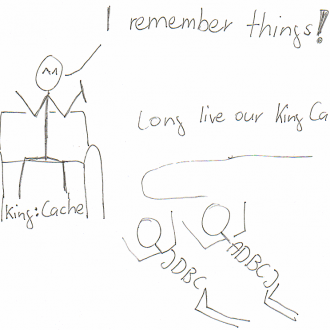 I remember things!
Long live our King Ca
King: Cache
JDBC
ADBCJ